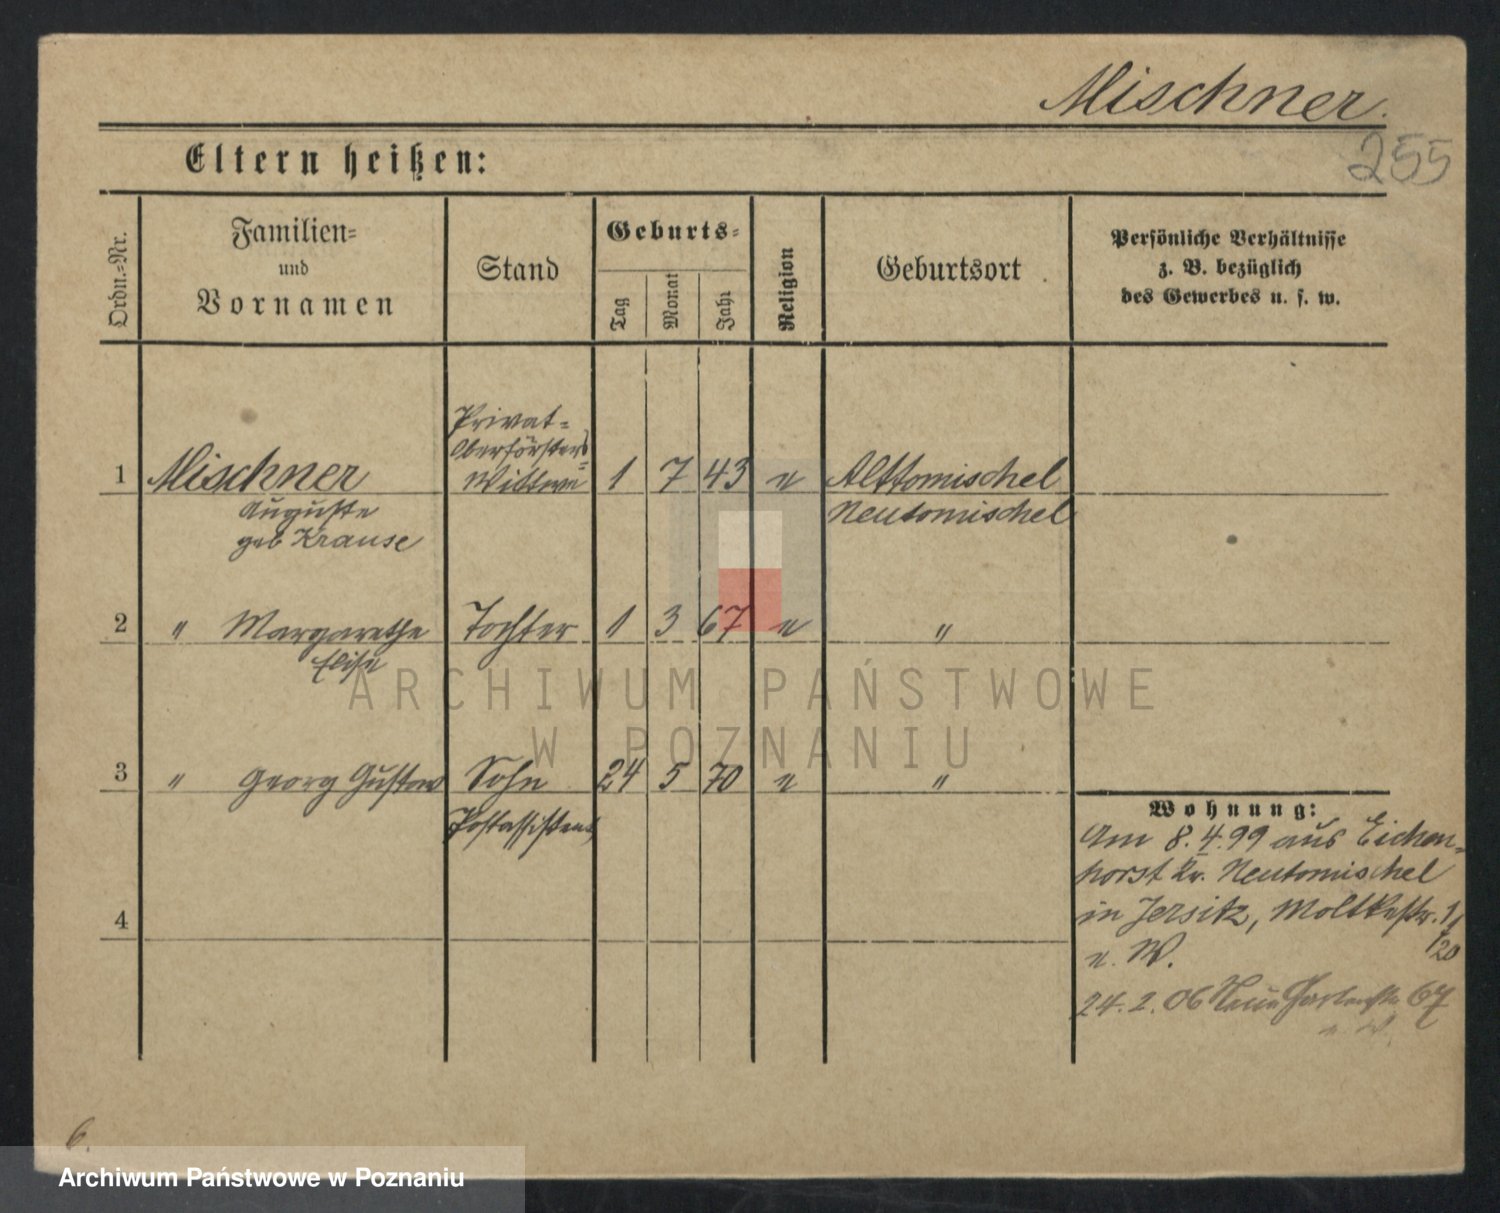 Mischner.
255
Eltern heißen:
Ordn.=Nr.
Familien=
und
Vornamen
Stand
Geburts=
Tag
Monat
Jahr
Religion
Geburtsort
Persönliche Verhältnisse
z. B. bezüglich
des Gewerbes u. s. w.
Privat=
Oberförster
1 Mischner Wittwe 1 7 43 Alttomischel
Auguste Neutomischel
geb Krause
2 " Margarethe Tochter 1 3 67 "
Elise
3 " Georg Gustav Sohn 24 5 70 "
Postassistent
4
Wohnung:
Am 8.4.99 aus Eichen=
horst Kr. Neutomischel
in Jersitz, Moltkestr.
n. W.
24.2.06 Neue Gartenstr 67
n. W.
6.
ARCHIWUM PAŃSTWOWE
W POZNANIU
Archiwum Państwowe w Poznaniu